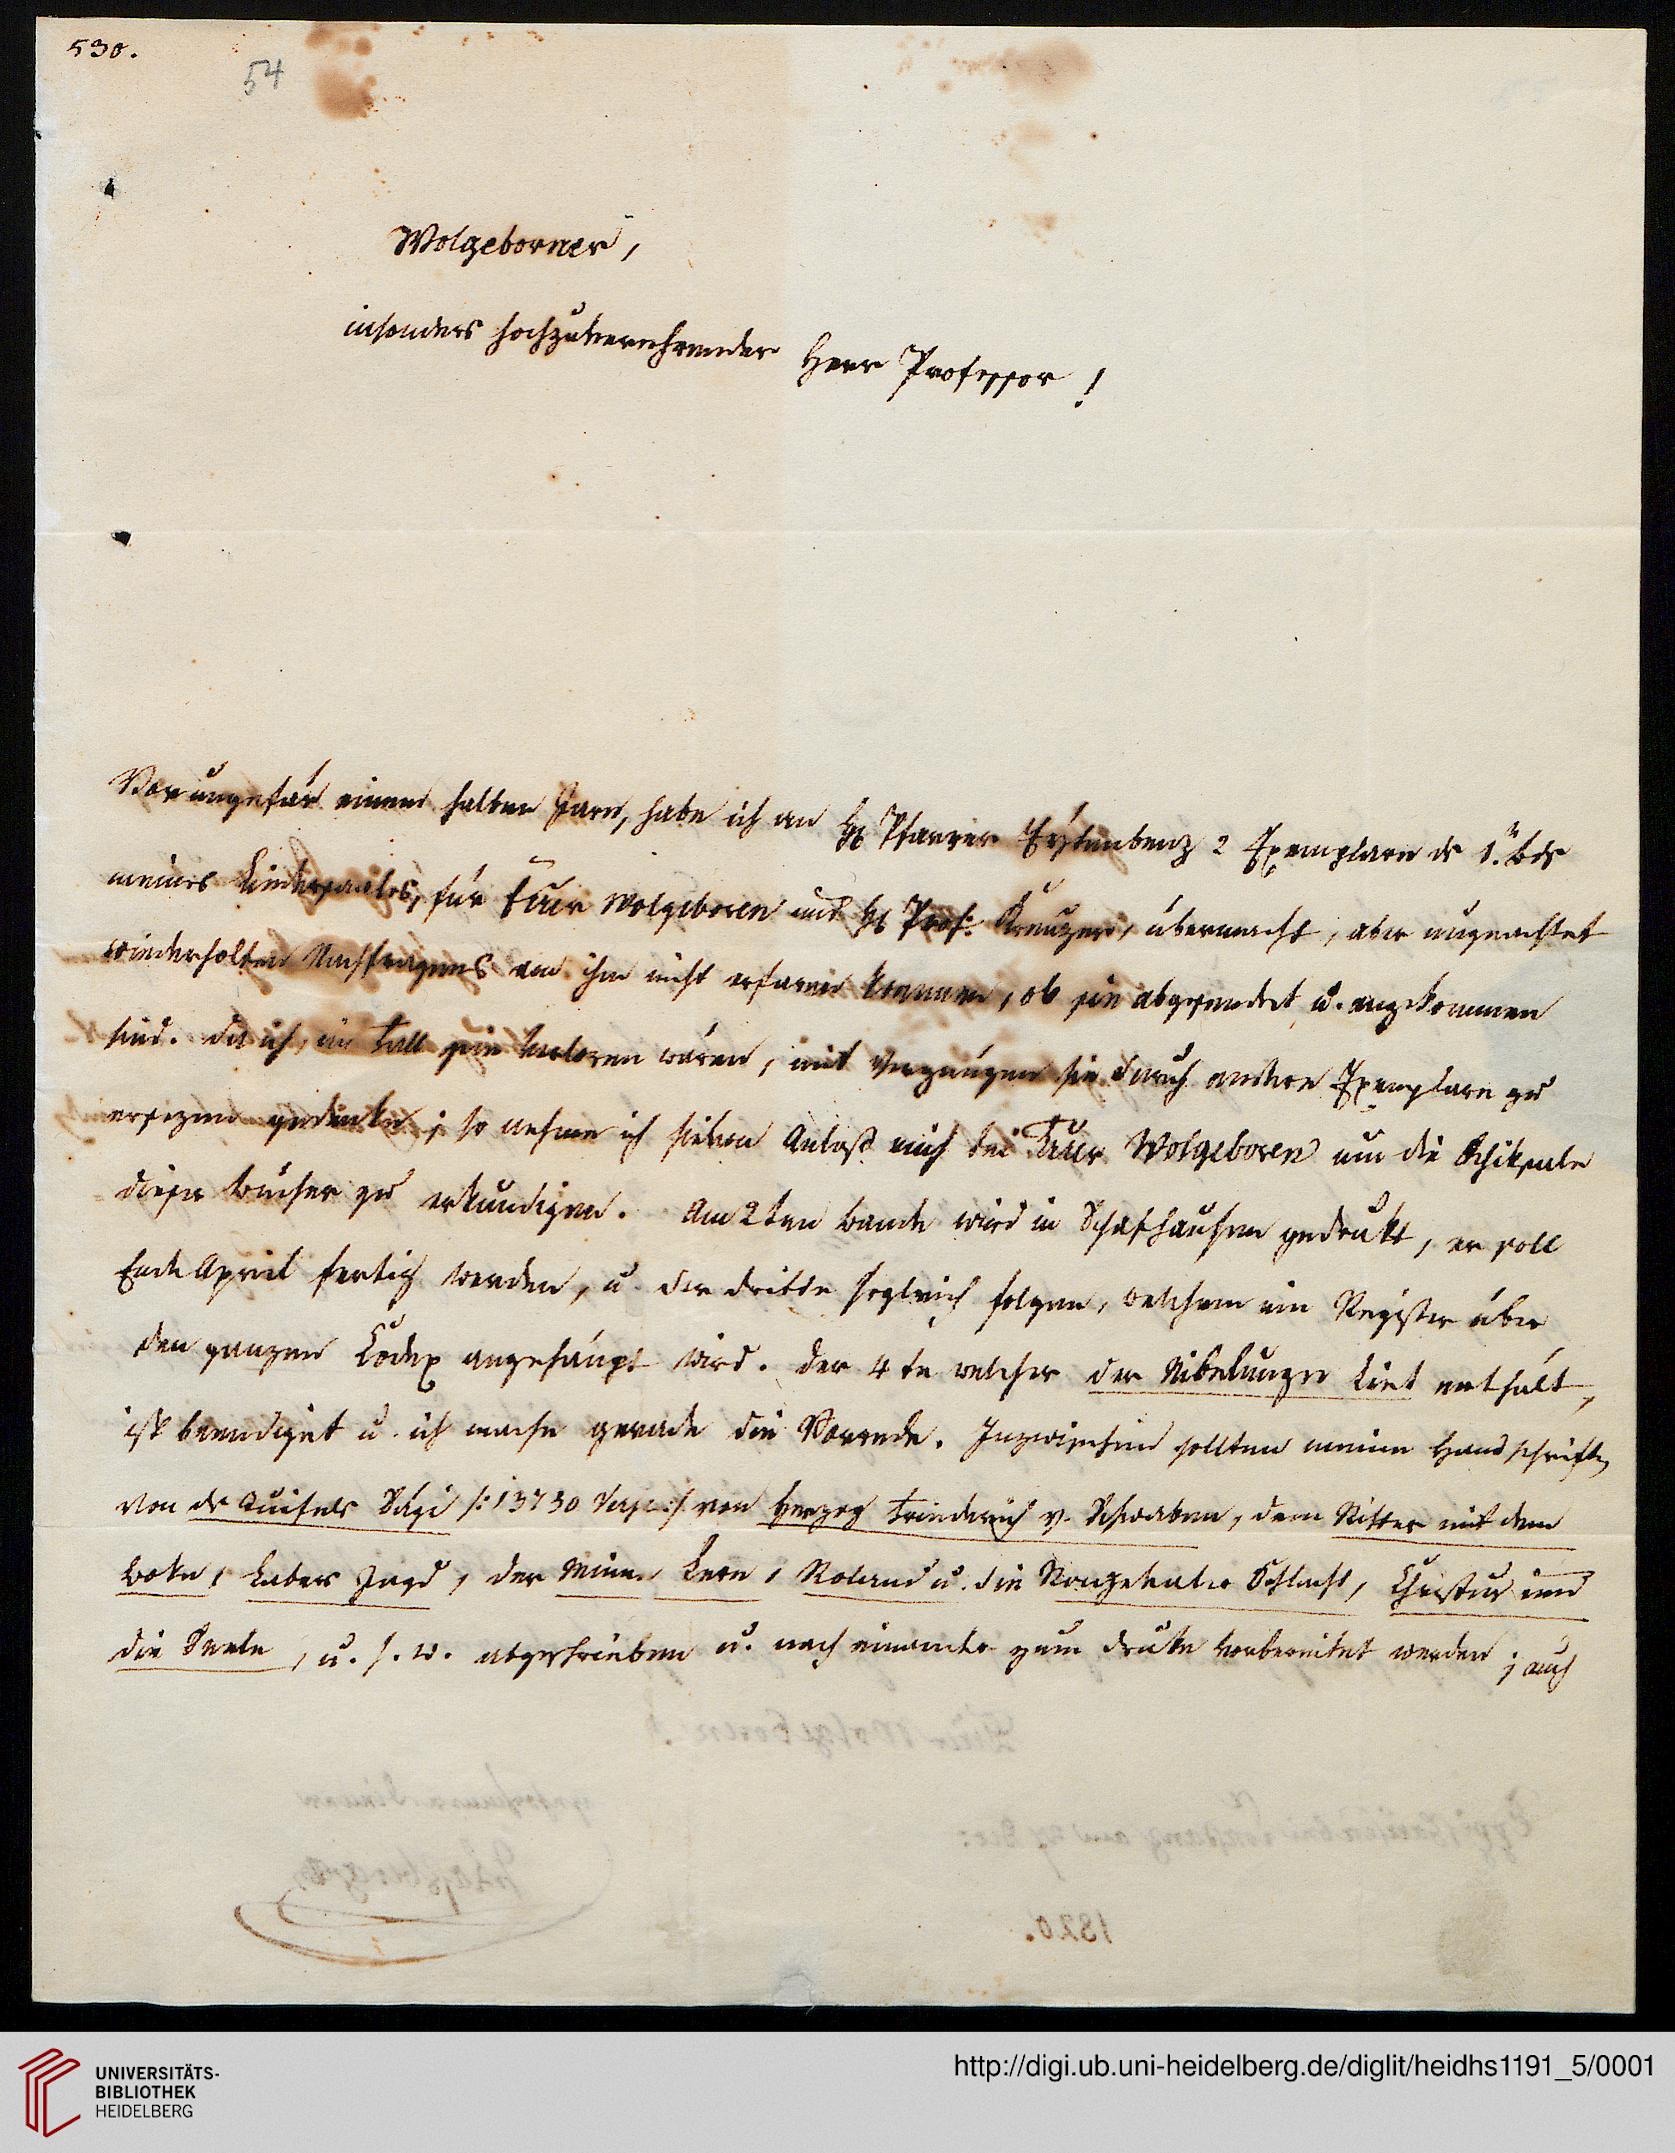 530.
54
Wolgeborner,
insonders hochzuverehrender
Herr Professor!
Vor ungefär einem halben Jare, habe ich an H Pfarrer 2 Exemplare des 1. Bds
meines Liedersaales, für Euer Wolgeboren und H Prof. Kreuzer, übermacht, aber ungeachtet
wiederholten Nachfragens von ihm nicht erfaren können, ob sie abgesendet u. angekommen
sind. Da ich, im Fall sie verloren wären, mit Vergnügen sie durch andere Exemplare zu
ersezen gedenke; so nehme ich hievon Anlaß mich bei Euer Wolgeboren um die Schiksale
dieser Bücher zu erkundigen. Am 2ten Bande wird in Schafhausen gedrukt, er soll
Ende April fertig werden, u. der dritte sogleich folgen, welchem ein Register über
den ganzen Codex angehängt wird. Der 4te welcher der Nibelungen Liet enthält,
ist beendiget u. ich mache gerade die Vorrede. Inzwischen sollten meine Handschriften
von des Tüifels Sägi /: 13730 Verse :/ von Herzog Friederich v. Schwaben, dem Ritter mit dem
Boke, Labers Jagd, der Minne Lere, Roland u. die Ronzevaler Schlacht, Christus und
die Seele, u. s. w. abgeschrieben u. nach einander zum Druke vorbereitet werden; auch
1820.
UNIVERSITÄTS-
BIBLIOTHEK
HEIDELBERG
http://digi.ub.uni-heidelberg.de/diglit/heidhs1191_5/0001